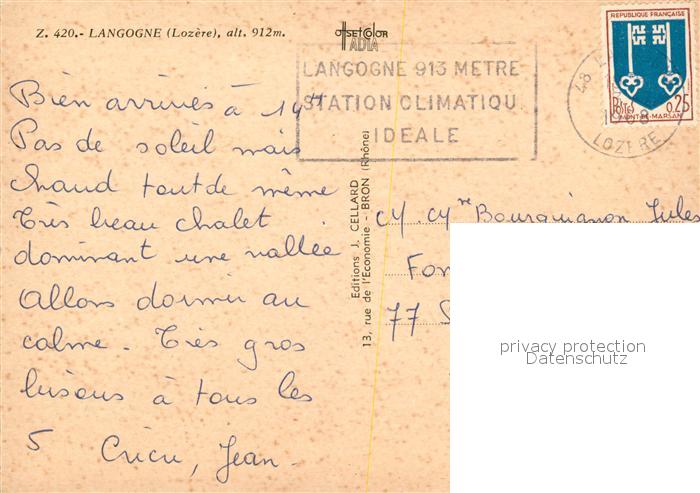 Z. 420.- LANGOGNE (Lozère), alt. 912m.
offsetCOLOR
IADIA
REPUBLIQUE FRANÇAISE
POSTES 0,25
MONT-DE-MARSAN
LANGOGNE 913 METRE
STATION CLIMATIQU
IDEALE
48
LOZERE
Bien arrivés à 19H
Pas de soleil mais
chaud tout de même
Très beau chalet
dominant une vallée
Allons dormir au
calme. Très gros
bisous à tous les
5 Cricri, Jean.
Editions J. CELLARD
13, rue de l'Economie - BRON (Rhône)
M. Mme Bourguignon Jules
Fon
77 S
privacy protection
Datenschutz